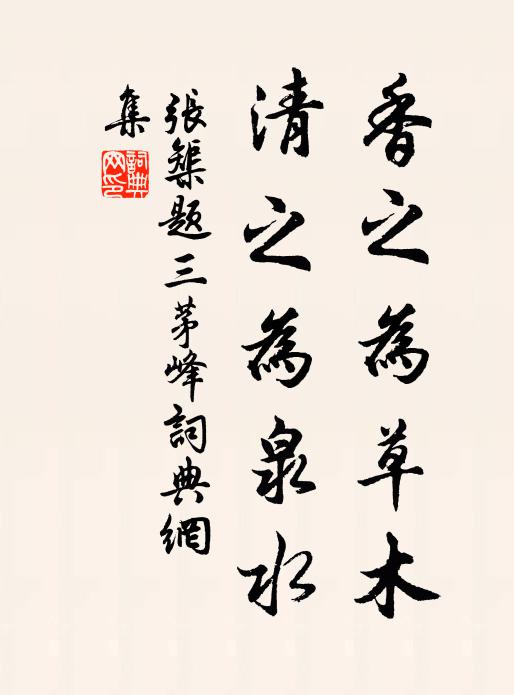 香之為草木
清之為泉水
張榘題三茅峰詞典網
集
詞典
网印